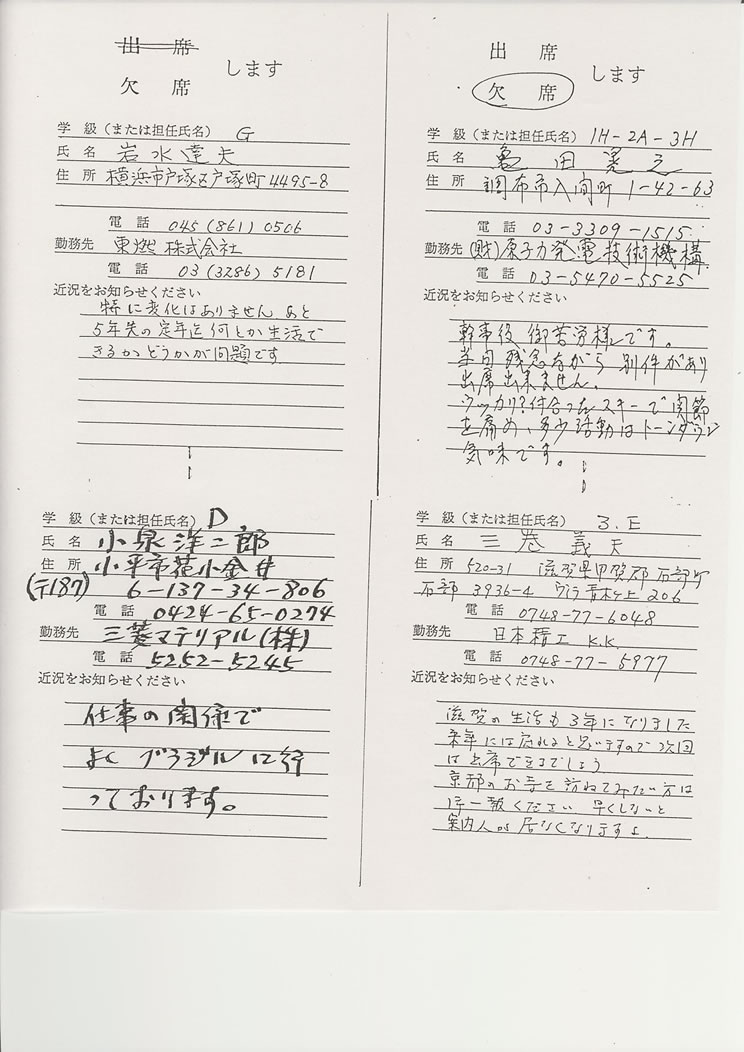 出席
欠席 します
学 級（または担任氏名） G
氏 名 岩水達夫
住 所 横浜市戸塚区戸塚町4495-8
電 話 045(861)0506
勤務先 東燃株式会社
電 話 03(3286)5181
近況をお知らせください
特に変化はありません。あと
5年先の定年迄何とか生活で
きるかどうかが問題です
出席
欠席 します
学 級（または担任氏名） 1H-2A-3H
氏 名 亀田
住 所 調布市入間町 1-42-63
電 話 03-3309-1515
勤務先 (財)原子力発電技術機構
電 話 03-5470-5525
近況をお知らせください
幹事役 御苦労様です。
当日 残念ながら 別件があり
出席出来ません。
ウッカリ?付合ったスキーで関節
を痛め、多少活動はトーンダウン
気味です。
学 級（または担任氏名） D
氏 名 小泉洋二郎
住 所 小平市花小金井
(〒187) 6-137-34-806
電 話 0424-65-0274
勤務先 三菱マテリアル(株)
電 話 5252-5245
近況をお知らせください
仕事の関係で
よく ブラジルに行
っております。
学 級（または担任氏名） 3.E
氏 名 三巻 義夫
住 所 520-31 滋賀県甲賀郡石部町
石部 3936-4 青木上 206
電 話 0748-77-6048
勤務先 日本精工 K.K.
電 話 0748-77-5977
近況をお知らせください
滋賀の生活も3年になりました
来年には戻れると思いますので次回
は出席できるでしょう
京都のお寺を訪ねてみたい方は
一報ください 早くしないと
案内人が居なくなりますよ